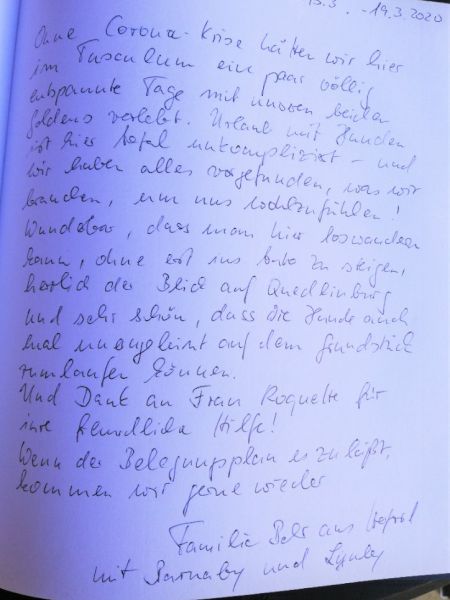 15.3. - 19.3.2020
Ohne Corona-Krise hätten wir hier
im Tusculum ein paar völlig
entspannte Tage mit unseren beiden
Goldens verlebt. Urlaub mit Hunden
ist hier total unkompliziert - und
wir haben alles vorgefunden, was wir
brauchen, um uns wohlzufühlen!
Wunderbar, dass man hier loswandern
kann, ohne erst ins Auto zu steigen,
herrlich der Blick auf Quedlinburg
und sehr schön, dass die Hunde auch
mal unangeleint auf dem Grundstück
rumlaufen können.
Und Dank an Frau Roquette für
ihre freundliche Hilfe!
Wenn der Belegungsplan es zuläßt,
kommen wir gerne wieder
Familie aus
mit Barnaby und Lynley